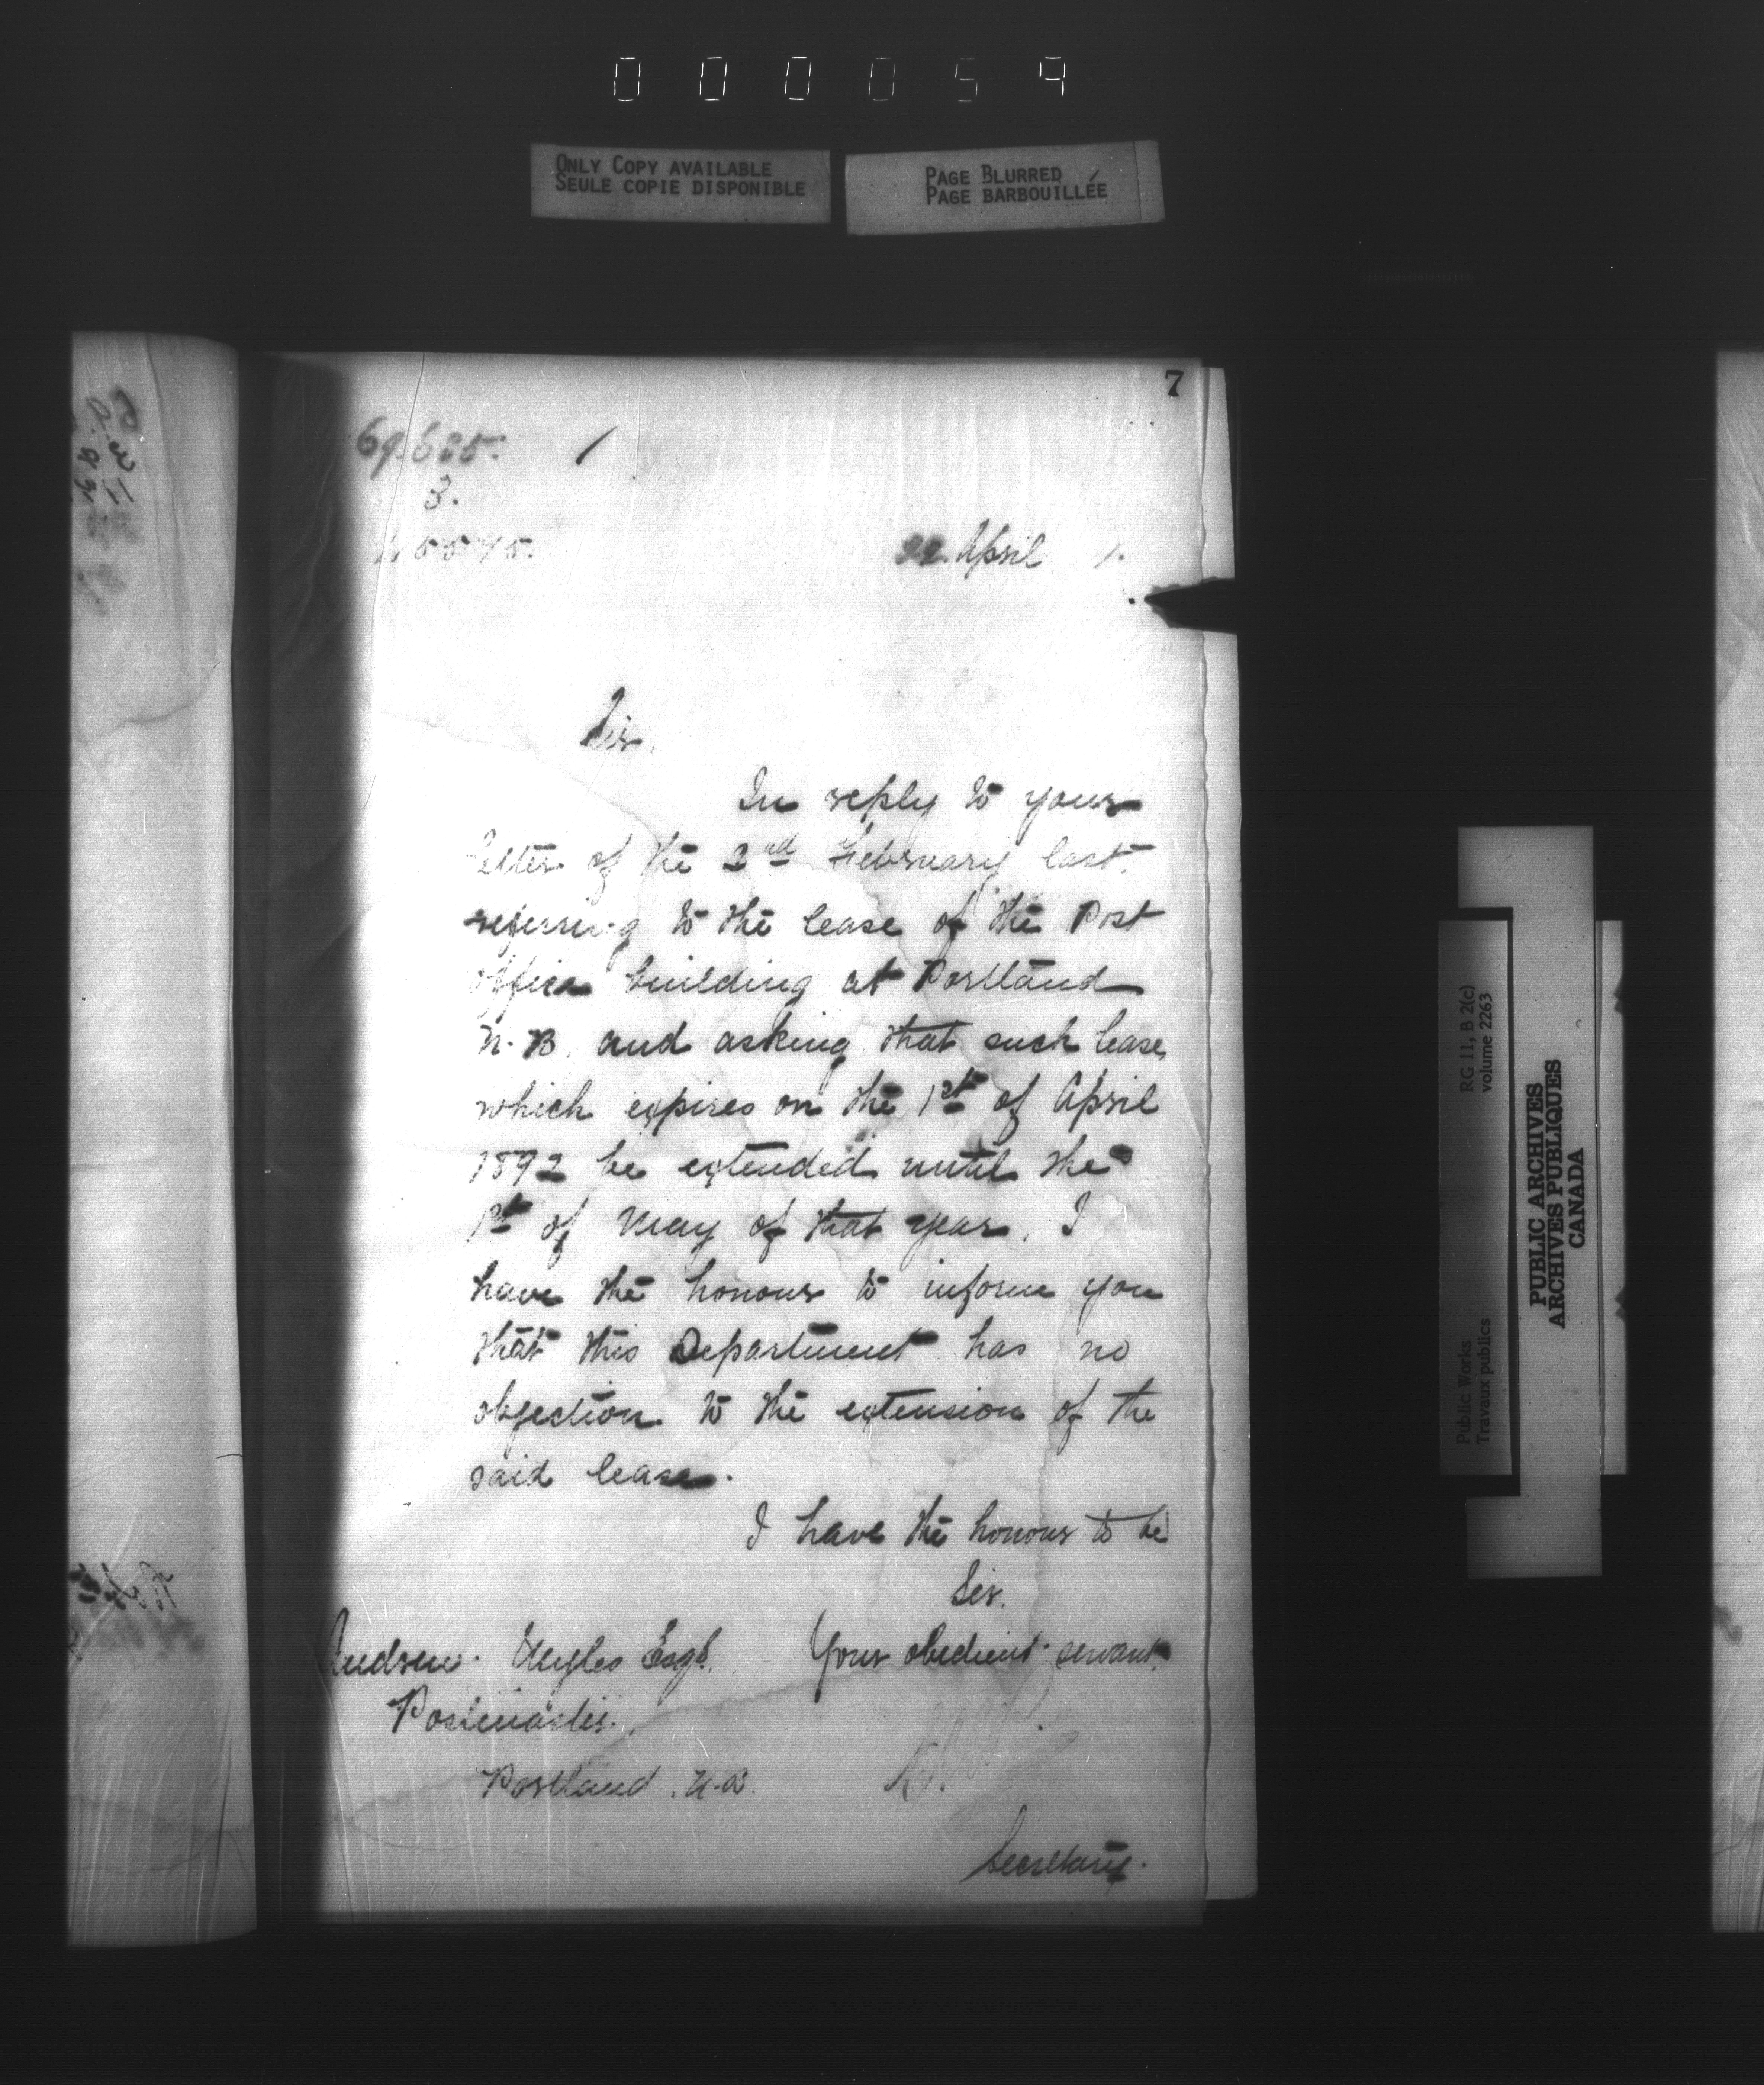 000059
ONLY COPY AVAILABLE
SEULE COPIE DISPONIBLE
PAGE BLURRED
PAGE BARBOUILLÉE
7
3.
22 April 1.
Sir,
In reply to your
letter of the 2nd February last
referring to the lease of the Post
Office building at Portland
N.B. and asking that such lease
which expires on the 1st of April
1892 be extended until the
1st of May of that year, I
have the honour to inform you
that this Department has no
objection to the extension of the
said lease.
I have the honour to be
Sir.
Your obedient servant
Esqr.
Postmaster.
Portland, N.B.
Secretary.
RG 11, B 2(c)
volume 2263
Public Works
Travaux publics
PUBLIC ARCHIVES
ARCHIVES PUBLIQUES
CANADA